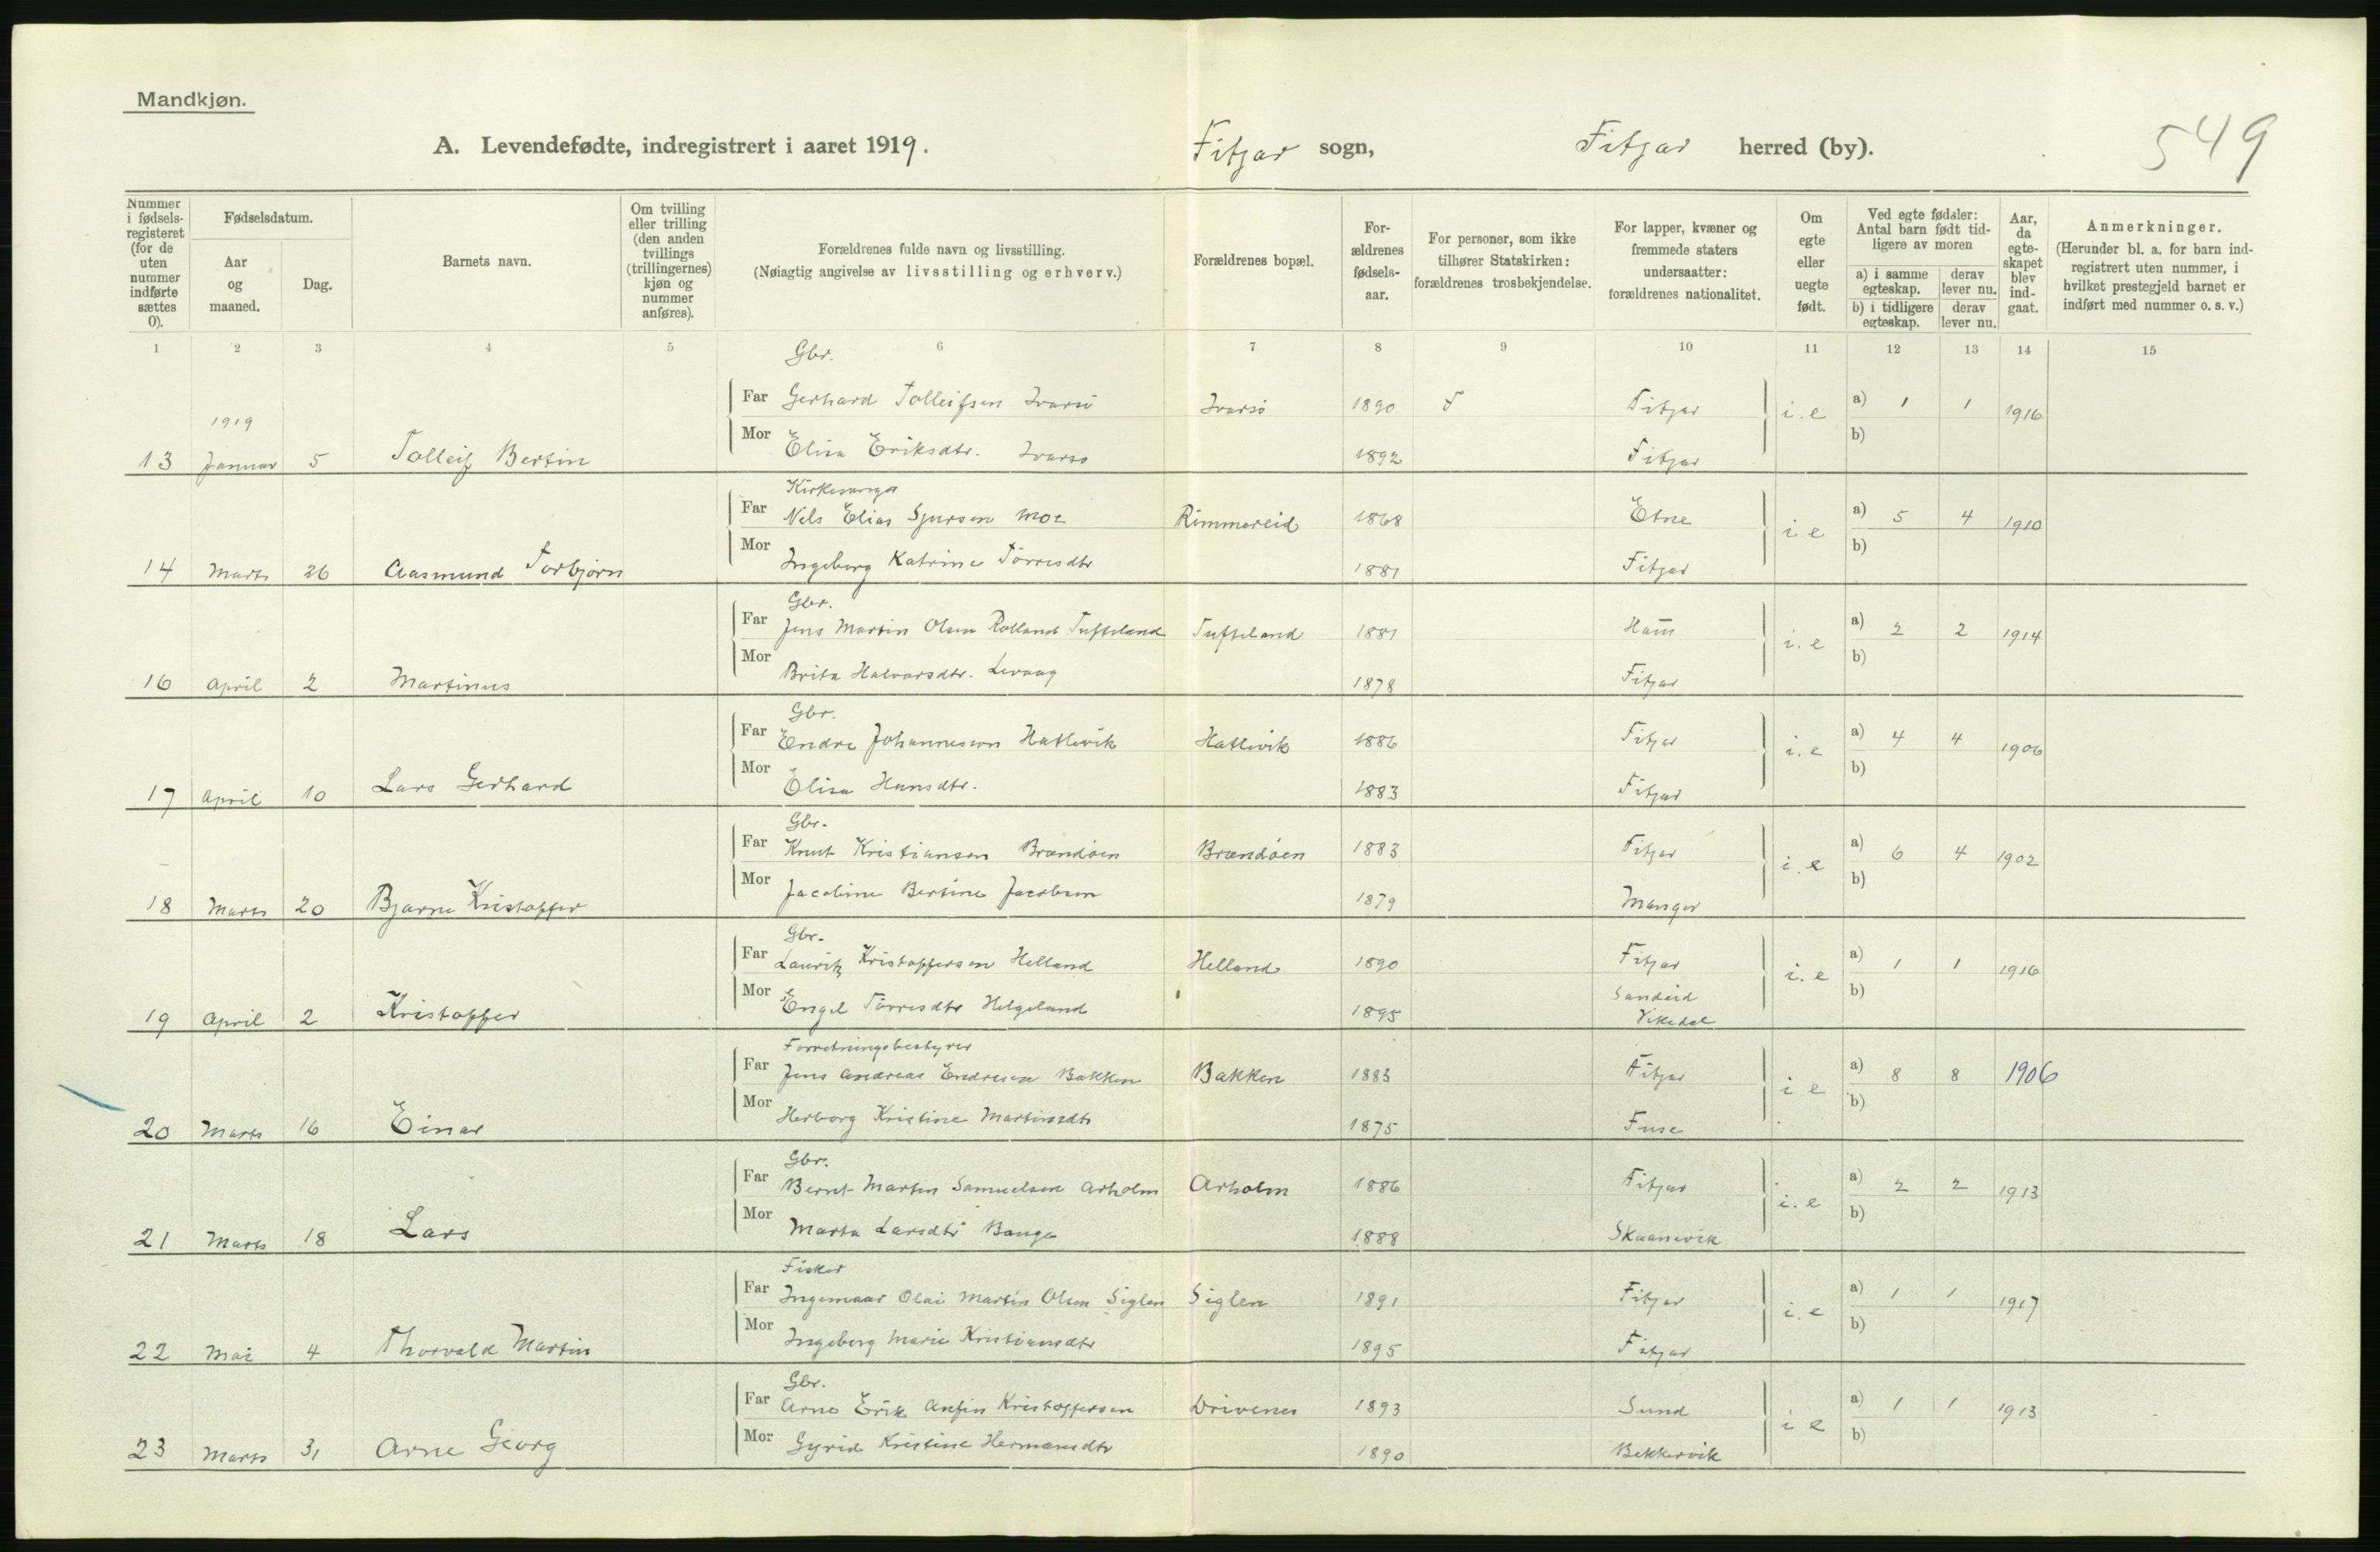 Mandkjøn.
A. Levendefødte, indregistrert i aaret 1919. Fitjar sogn, Fitjar herred (by). 549
Nummer i fødselsregisteret (for de uten nummer indførte sættes 0).
Fødselsdatum.
Aar og maaned.
Dag.
Barnets navn.
Om tvilling eller trilling (den anden tvillings (trillingernes) kjøn og nummer anføres).
Forældrenes fulde navn og livsstilling.
(Nøiagtig angivelse av livsstilling og erhverv.)
Forældrenes bopæl.
Forældrenes fødselsaar.
For personer, som ikke tilhører Statskirken: forældrenes trosbekjendelse.
For lapper, kvæner og fremmede staters undersaatter: forældrenes nationalitet.
Om egte eller uegte født.
Ved egte fødsler: Antal barn født tidligere av moren
a) i samme egteskap. derav lever nu.
b) i tidligere egteskap. derav lever nu.
Aar, da egteskapet blev indgaat.
Anmerkninger.
(Herunder bl. a. for barn indregistrert uten nummer, i hvilket prestegjeld barnet er indført med nummer o. s. v.)
1 2 3 4 5 6 7 8 9 10 11 12 13 14 15
Gbr.
Far Gerhard Tolleifsen Ivarsö Ivarsö 1890 F Fitjar i. e a) 1 1 1916
1919
Mor Elisa Eriksdtr. Ivarsö 1892 Fitjar b)
13 Januar 5 Tolleif Bertin
Kirkesanger
Far Nels Elias Sjursen Moe Rimmereid 1868 Etne i e a) 5 4 1910
Mor Ingeborg Katrine Törresdtr 1881 Fitjar b)
14 Marts 26 Aasmund Torbjörn
Gbr.
Far Jens Martin Olsen Rolland Tufteland Tufteland 1881 Ham̄ i. e a) 2 2 1914
Mor Brita Halvorsdtr. Levaag 1878 Fitjar b)
16 April 2 Martinus
Gbr.
Far Endre Johannesson Hatlevik Hatlevik 1886 Fitjar i. e a) 4 4 1906
Mor Elisa Hansdtr. 1883 Fitjar b)
17 April 10 Lars Gerhard
Gbr.
Far Knut Kristiansen Brandöen Brandöen 1883 Fitjar i. e a) 6 4 1902
Mor Jacobine Bertine Jacobsen 1879 Manger b)
18 Marts 20 Bjarne Kristoffer
Gbr.
Far Lauritz Kristoffersen Helland Helland 1890 Fitjar i. e a) 1 1 1916
Mor Engel Törresdtr Helgeland 1895 Sandeid Vikedal b)
19 April 2 Kristoffer
Forretningsbestyrer
Far Jens Andreas Endresen Bakken Bakken 1883 Fitjar i e a) 8 8 1906
Mor Herborg Kristine Martinsdtr 1875 Fuse b)
20 Marts 16 Einar
Gbr.
Far Bernt Martin Samuelsen Arholm Arholm 1886 Fitjar i. e a) 2 2 1913
Mor Marta Larsdtr Bauge 1888 Skaanevik b)
21 Marts 18 Lars
Fisker
Far Ingemaar Olai Martin Olsen Siglen Siglen 1891 Fitjar i. e a) 1 1 1917
Mor Ingeborg Marie Kristiansdtr 1895 Fitjar b)
22 Mai 4 Thorvald Martin
Gbr.
Far Arne Erik Anfin Kristoffersen Drivenes 1893 Sund i e a) 1 1 1913
Mor Gyrid Kristine Hermansdtr 1890 Bekkervik b)
23 Marts 31 Arne Georg